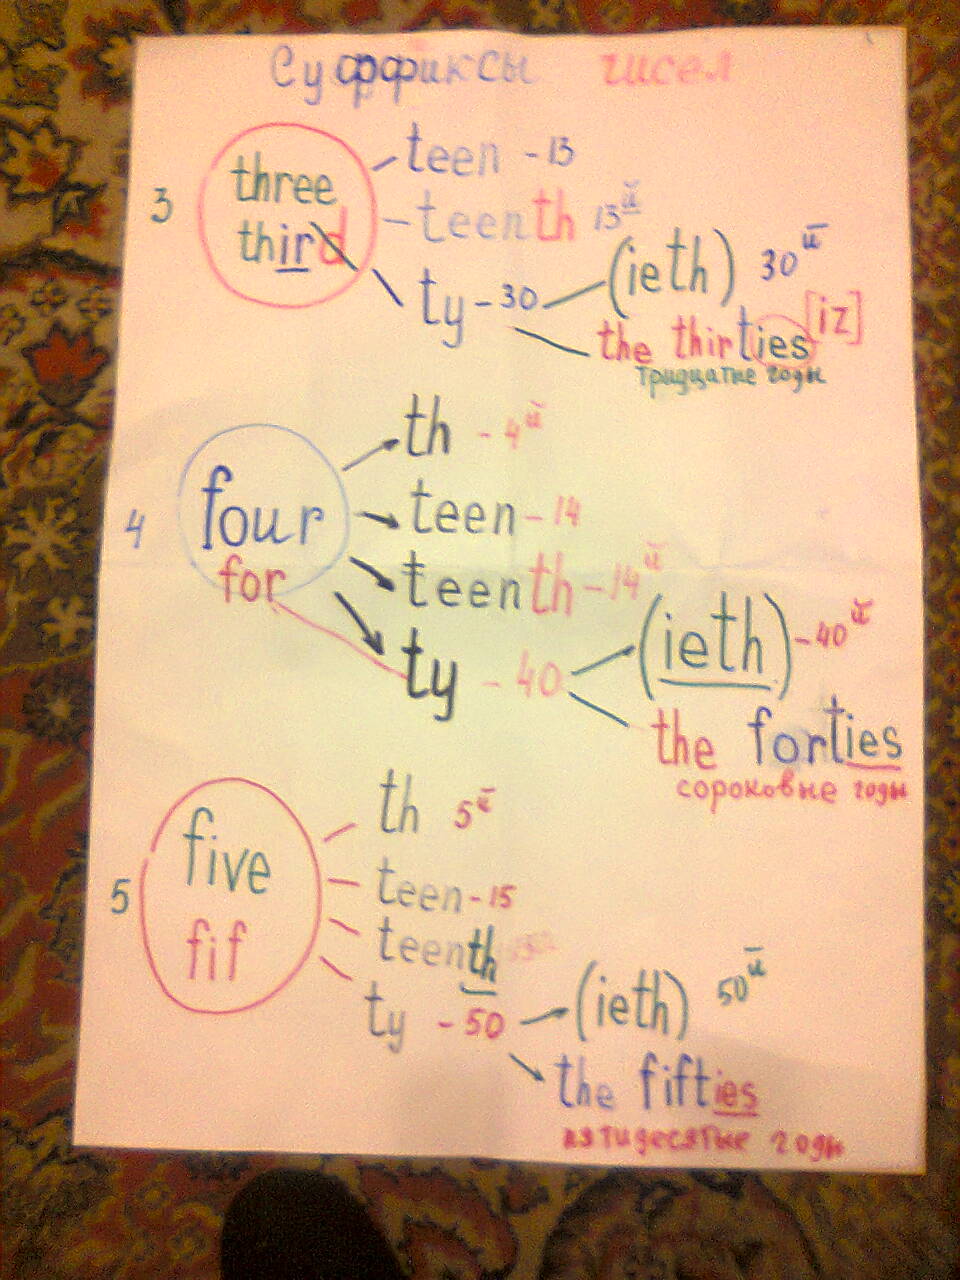 Суффиксы чисел
three teen - 13
3
third teenth 13й
ty - 30 (ieth) 30й
the thirties [iz]
тридцатые годы
th - 4й
4 four teen - 14
for teenth - 14й
ty - 40 (ieth) - 40й
the forties
сороковые годы
th 5й
five teen - 15
5
fif teenth
ty - 50 (ieth) 50й
the fifties
пятидесятые годы